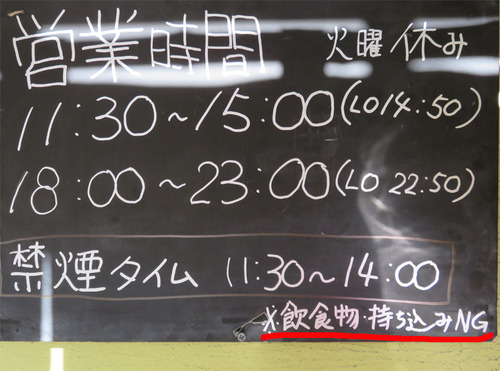 営業時間 火曜休み
11:30~15:00(LO14:50)
18:00~23:00(LO 22:50)
禁煙タイム 11:30~14:00
※飲食物・持ち込みNG